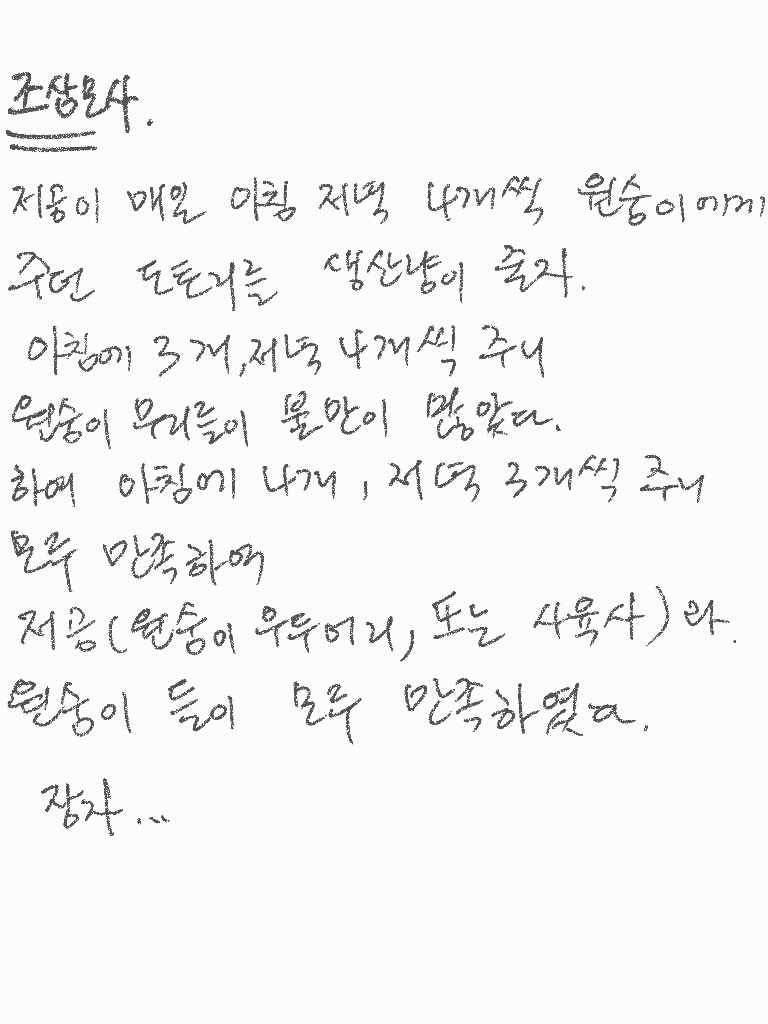 조삼모사.
저공이 매일 아침 저녁 4개씩 원숭이에게
주던 도토리를 생산량이 줄자.
아침에 3개, 저녁 4개씩 주니
원숭이 무리들이 불만이 많았다.
하여 아침에 4개, 저녁 3개씩 주니
모두 만족하여
저공(원숭이 우두머리, 또는 사육사)와.
원숭이 들이 모두 만족하였다.
장자...